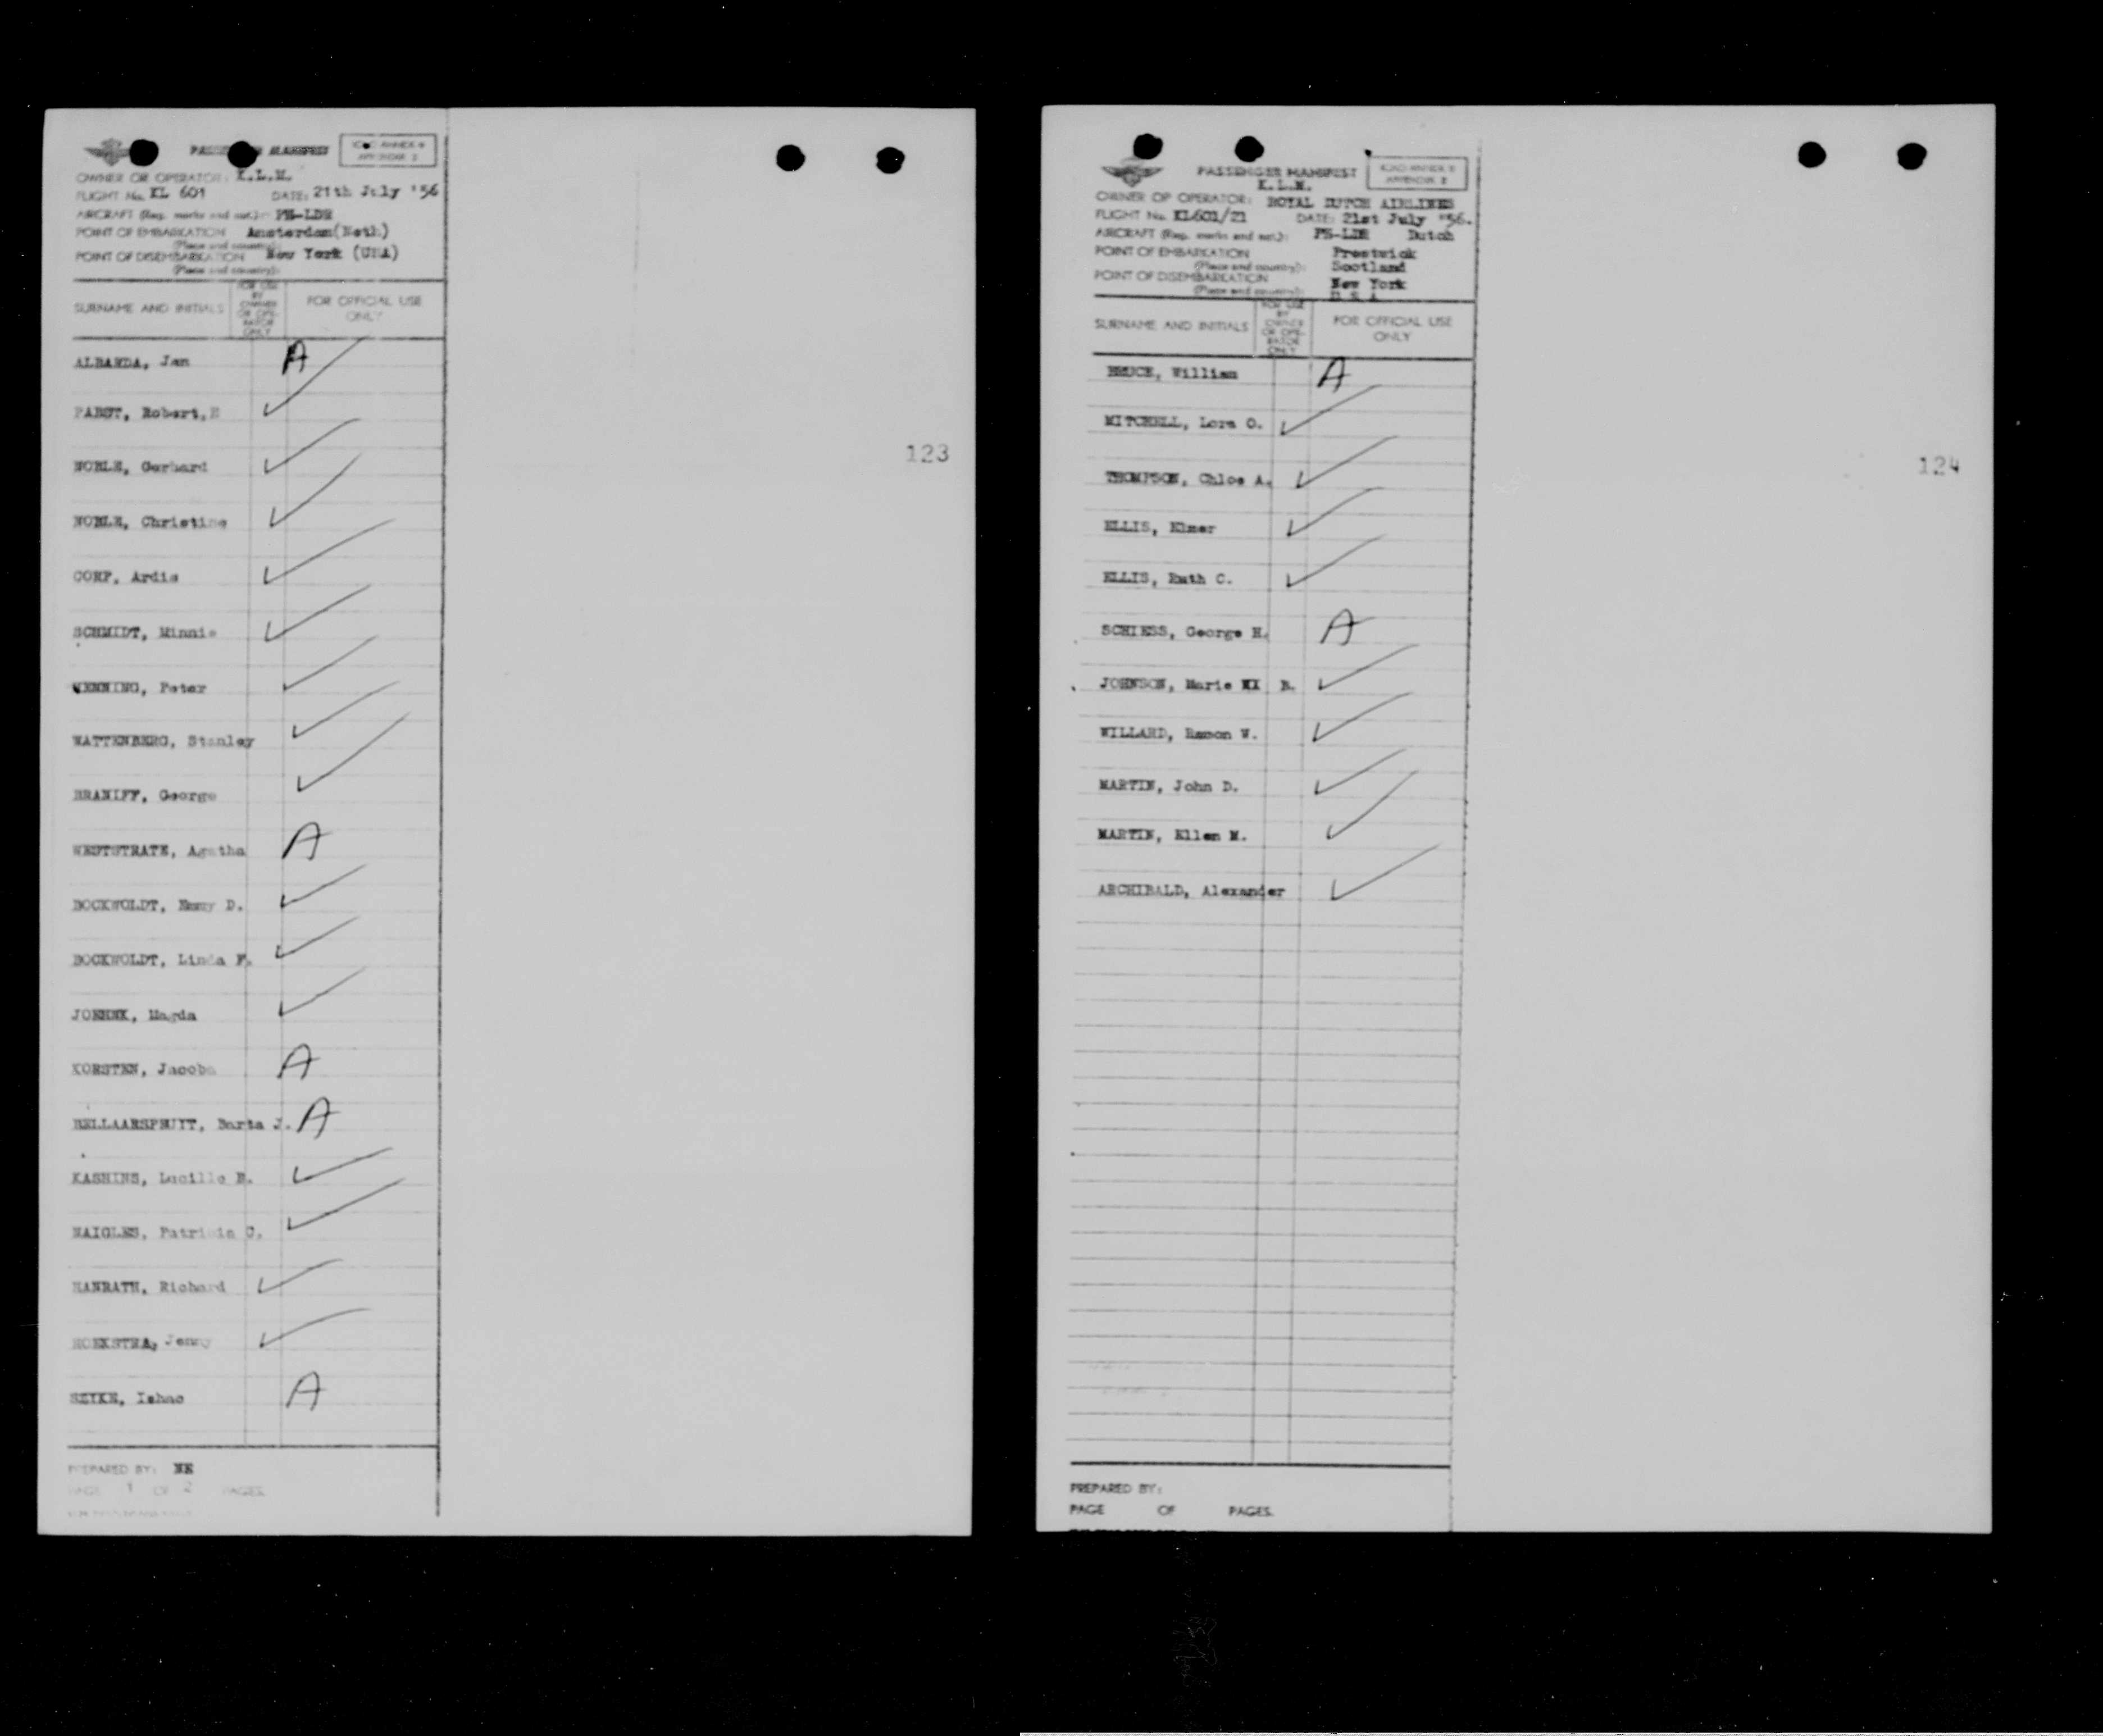 PASSENGER MANIFEST
ICAO ANNEX 9
APPENDIX 2
OWNER OR OPERATOR: K.L.M.
FLIGHT No. KL 601 DATE: 21th July '56
AIRCRAFT (Reg. marks and nat.): PH-LDR
POINT OF EMBARKATION Amsterdam(Neth)
(Place and country):
POINT OF DISEMBARKATION New York (USA)
(Place and country):
SURNAME AND INITIALS
FOR USE
BY
OWNER
OR OPE-
RATOR
ONLY
FOR OFFICIAL USE
ONLY
ALBARDA, Jan A
PABST, Robert,E
NOBLE, Gerhard
NOBLE, Christine
CORP, Ardis
SCHMIDT, Minnie
WENNING, Peter
WATTENBERG, Stanley
BRANIFF, George
WESTSTRATE, Agatha A
BOCKWOLDT, Emmy D.
BOCKWOLDT, Linda F.
JOEHNK, Magda
KORSTEN, Jacoba A
BELLAARSPRUYT, Barta J. A
KASHINS, Lucille B.
NAIGLES, Patricia C.
HANRATH, Richard
HOEKSTRA, Jenny
SZYKE, Ishac A
PREPARED BY: NE
PAGE 1 OF 2 PAGES
123
PASSENGER MANIFEST
ICAO ANNEX 9
APPENDIX 2
K.L.M.
OWNER OF OPERATOR: ROYAL DUTCH AIRLINES
FLIGHT No. KL601/21 DATE: 21st July '56.
AIRCRAFT (Reg. marks and nat.): PH-LDR Dutch
POINT OF EMBARKATION Prestwick
(Place and country): Scotland
POINT OF DISEMBARKATION New York
(Place and country): U S A
SURNAME AND INITIALS
FOR USE
BY
OWNER
OR OPE-
RATOR
ONLY
FOR OFFICIAL USE
ONLY
BRUCE, William A
MITCHELL, Lora O.
THOMPSON, Chloe A.
ELLIS, Elmer
ELLIS, Ruth C.
SCHIESS, George H. A
JOHNSON, Marie XX B.
WILLARD, Ramon W.
MARTIN, John D.
MARTIN, Ellen M.
ARCHIBALD, Alexander
PREPARED BY:
PAGE OF PAGES.
124